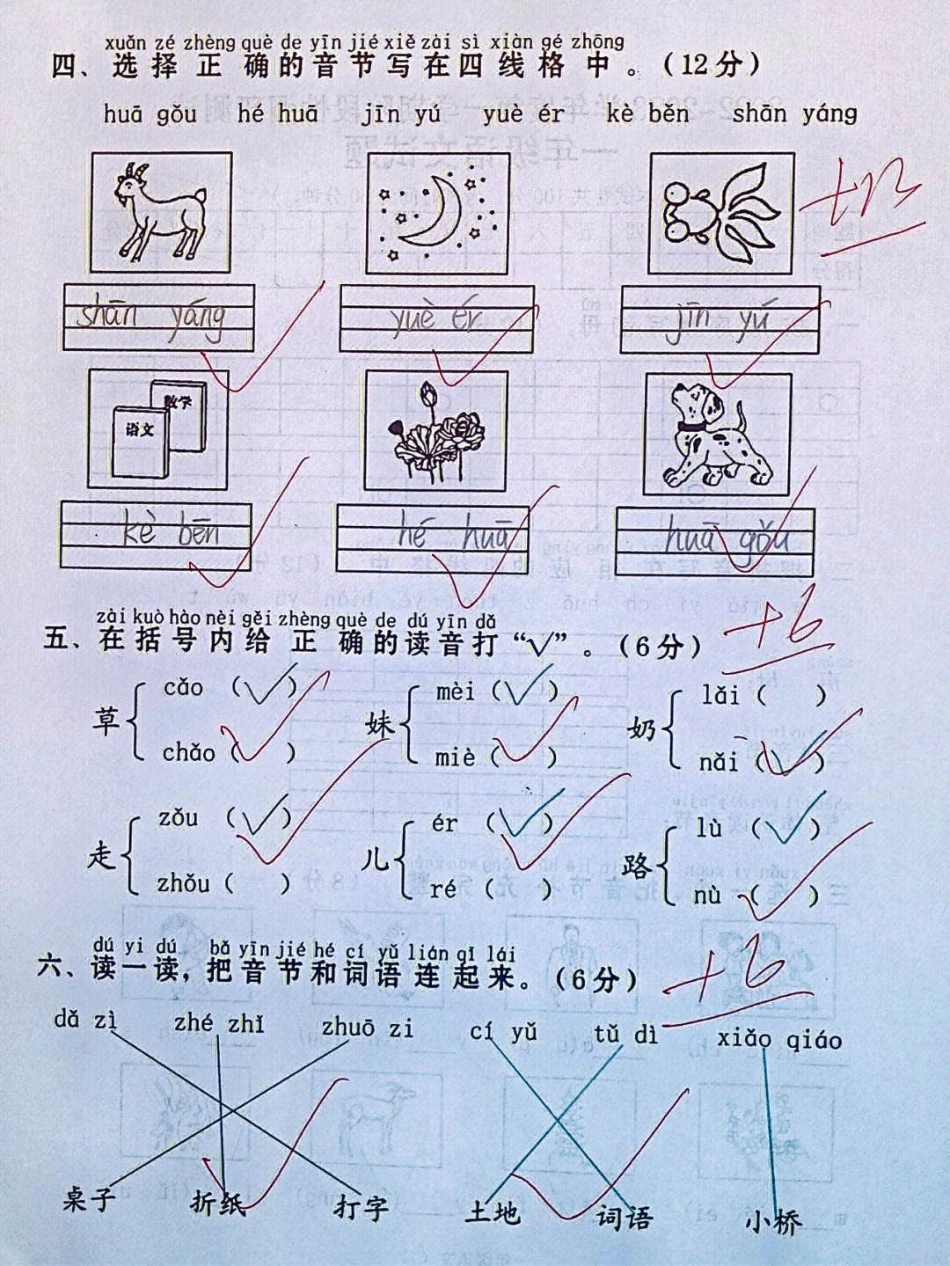 xuǎn zé zhèng què de yīn jié xiě zài sì xiàn gé zhōng
四、选择正确的音节写在四线格中。(12分)
huā gǒu hé huā jīn yú yuè ér kè běn shān yáng
+12
shān yáng yuè ér jīn yú
数学
语文
kè bēn hé huā huā gǒu
zài kuò hào nèi gěi zhèng què de dú yīn dǎ
五、在括号内给正确的读音打“√”。(6分)
+6
草 cǎo (√) chǎo ( )
妹 mèi (√) miè ( )
奶 lǎi ( ) nǎi (√)
走 zǒu (√) zhǒu ( )
儿 ér (√) ré ( )
路 lù (√) nù ( )
dú yi dú, bǎ yīn jié hé cí yǔ lián qǐ lái
六、读一读,把音节和词语连起来。(6分)
+6
dǎ zì zhé zhǐ zhuō zi cí yǔ tǔ dì xiǎo qiáo
桌子 折纸 打字 土地 词语 小桥